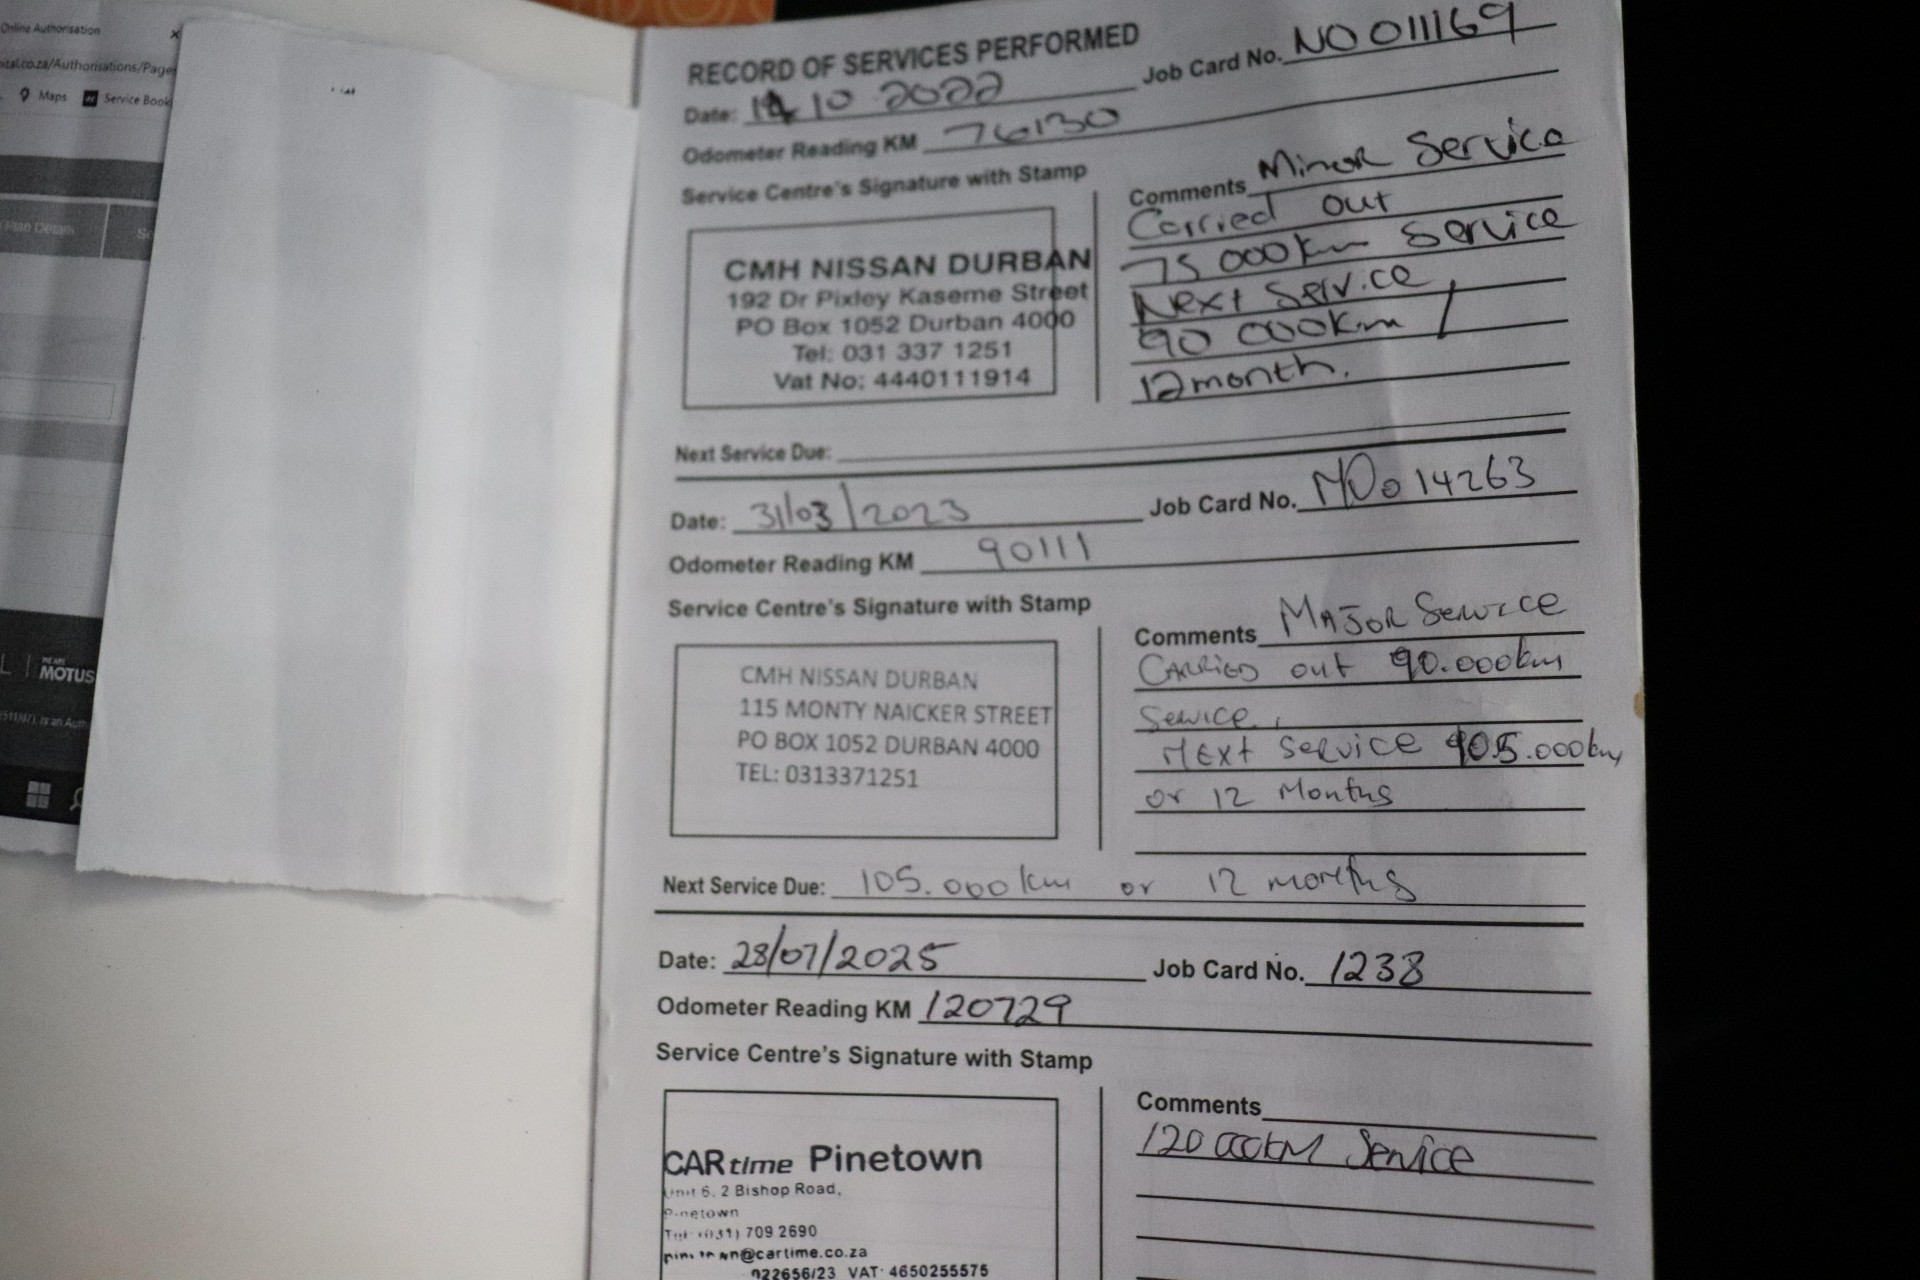 Online Authorisation
ital.co.za/Authorisations/Page
Maps Service Book
Plan Details
MOTUS
RECORD OF SERVICES PERFORMED
Date: 14 10 2022 Job Card No. NO 011169
Odometer Reading KM 76130
Service Centre's Signature with Stamp
CMH NISSAN DURBAN
192 Dr Pixley Kaseme Street
PO Box 1052 Durban 4000
Tel: 031 337 1251
Vat No: 4440111914
Comments Minor Service
Carried out
75 000km Service
Next Service
90 000km /
12 month.
Next Service Due:
Date: 31/03/2023 Job Card No. NO014263
Odometer Reading KM 90111
Service Centre's Signature with Stamp
CMH NISSAN DURBAN
115 MONTY NAICKER STREET
PO BOX 1052 DURBAN 4000
TEL: 0313371251
Comments MAJOR Service
CARRIED out 90.000km
Service.
NExt Service 105.000km
or 12 Months
Next Service Due: 105.000km or 12 months
Date: 28/07/2025 Job Card No. 1238
Odometer Reading KM 120729
Service Centre's Signature with Stamp
CARtime Pinetown
Unit 6, 2 Bishop Road,
Pinetown
Tel: (031) 709 2690
@cartime.co.za
022656/23 VAT: 4650255575
Comments
120 000KM Service